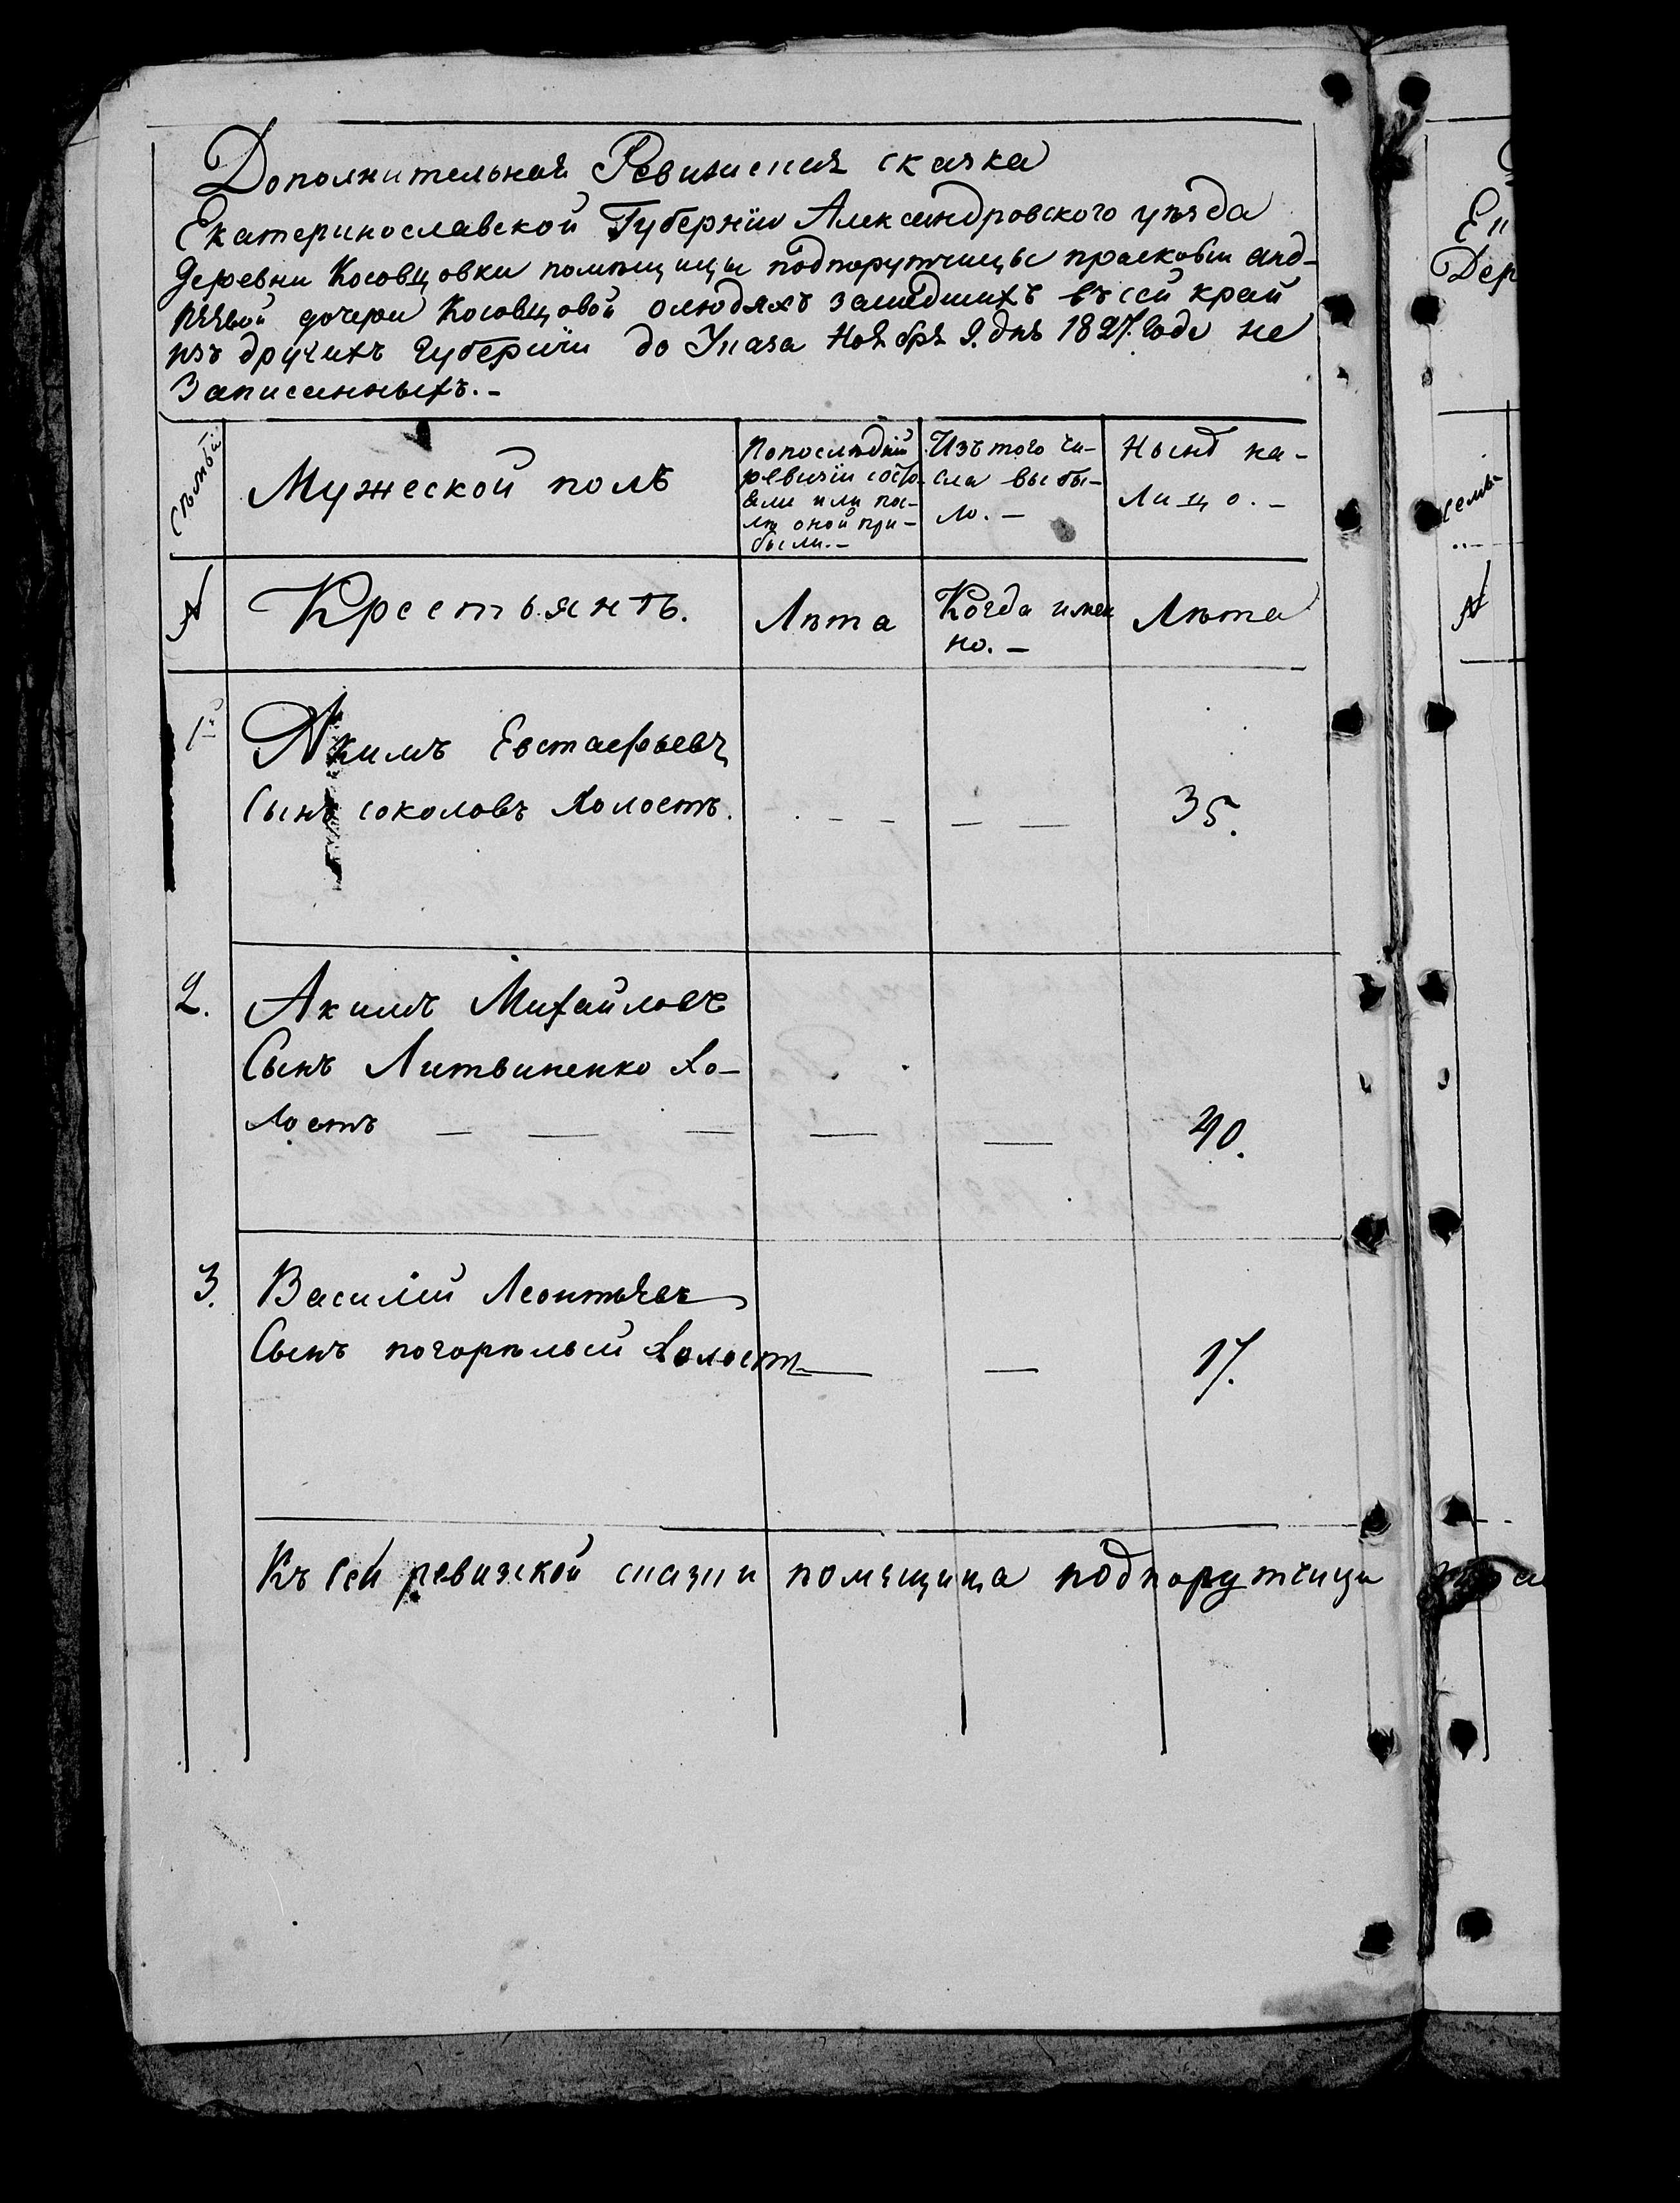 Дополнительная Ревизская скаска
Екатеринославской Губернїи Александровского уѣзда
деревни Косовцовки помѣщицы подпорутчицы прасковьи анд-
рѣевой дочери Косовцовой олюдяхъ зашедшихъ въ сей край
изъ другихъ Губернїи до Указа Ноября 9. дня 1827. Года не
записанныхъ.-
Мужеской полъ
Попослѣднѣй
ревизїи состо-
яли или пос-
лѣ оной при-
были.-
Изъ того чи-
сла выбы-
ло.-
Нынѣ на-
лицо.-
семьи
№
Крестьянъ.
Лѣта
Когда имен
но.-
Лѣта
№
1й
Якимъ Евстафьевъ
Сынъ соколовъ холостъ.
35.
2.
Акимъ Михайловъ
Сынъ Литвиненко хо-
лостъ
40.
3.
Василий Леонтьевъ
Сынъ погорѣлый холостъ
17.
Къ сей ревиской скаски помѣщица подпорутчица
Ек
Дер